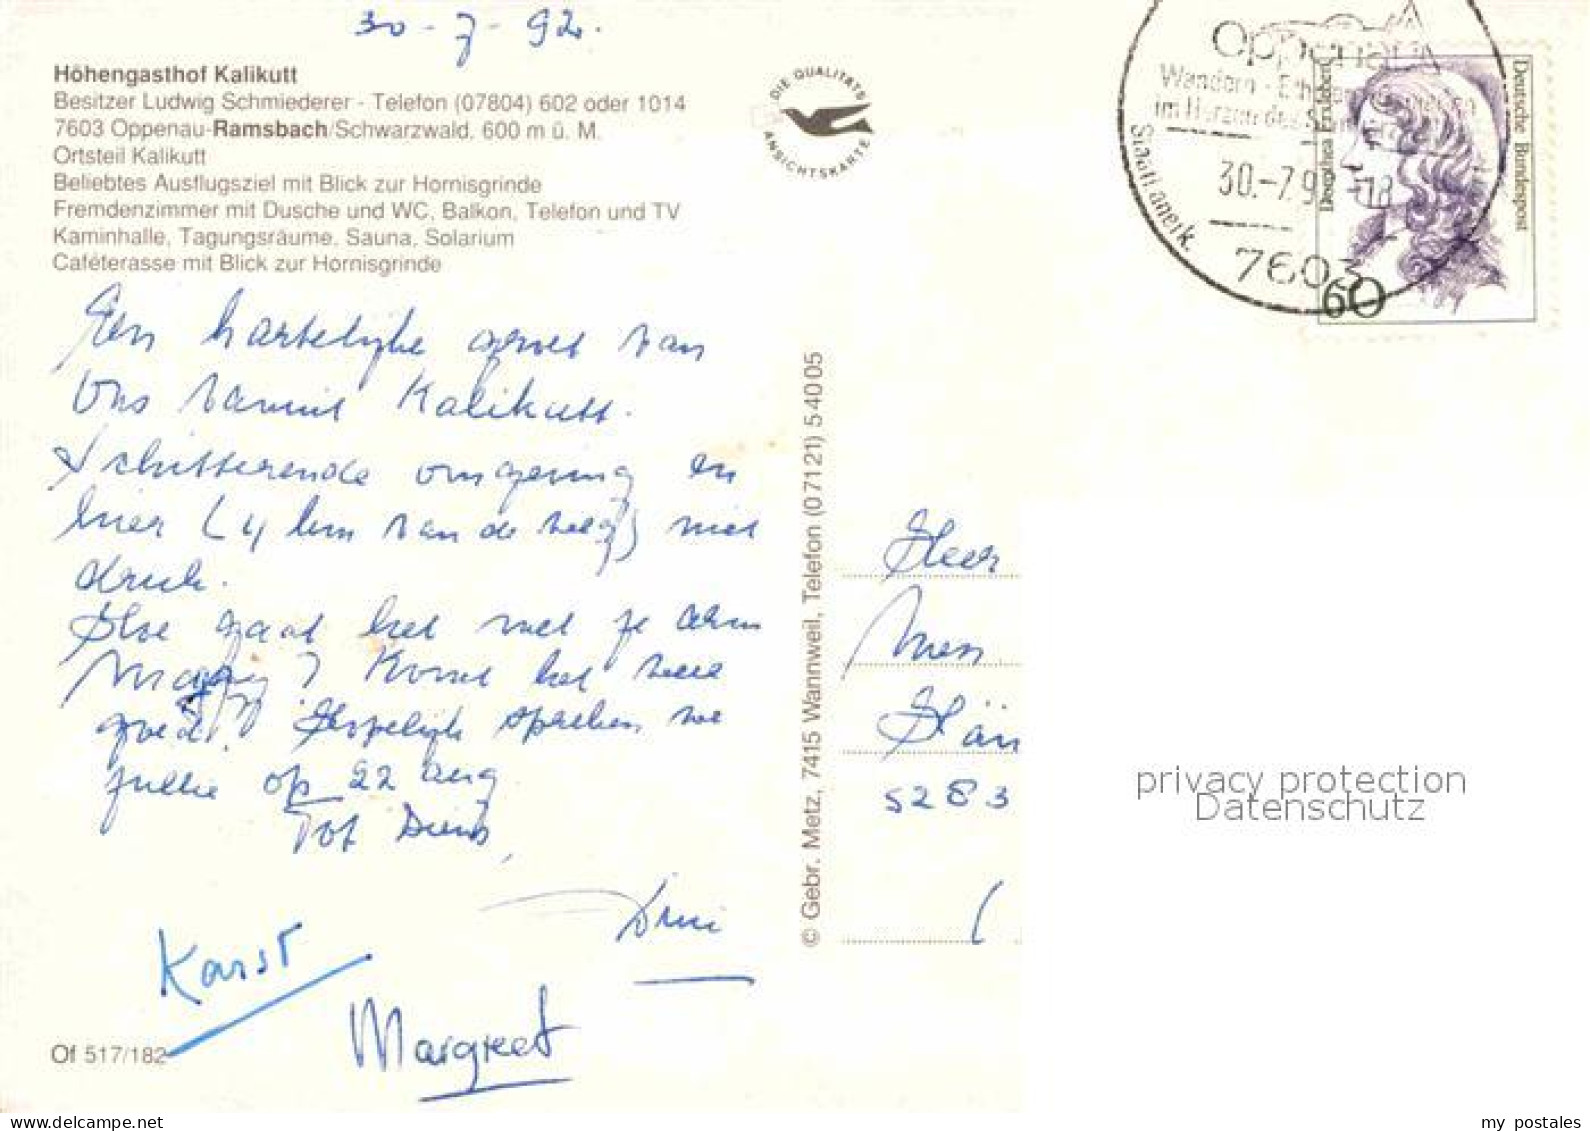 30-7-92.
Höhengasthof Kalikutt
Besitzer Ludwig Schmiederer - Telefon (07804) 602 oder 1014
7603 Oppenau-Ramsbach/Schwarzwald, 600 m ü. M.
Ortsteil Kalikutt
Beliebtes Ausflugsziel mit Blick zur Hornisgrinde
Fremdenzimmer mit Dusche und WC, Balkon, Telefon und TV
Kaminhalle, Tagungsräume, Sauna, Solarium
Caféterasse mit Blick zur Hornisgrinde
DIE QUALITÄTS
ANSICHTSKARTE
Een hartelijke groet van
Ons vanuit Kalikutt.
Schitterende omgeving en
hier (4 km van de weg) niet
druk.
Hoe gaat het met je arm
? Komt het weer
goed? Hopelijk spreken we
jullie op 22 aug
Tot Diens,
Dini
Karst
Margreet
Of 517/182
© Gebr. Metz, 7415 Wannweil, Telefon (07121) 54005
Oppenau
Wandern -
im Herzen des
30.-7.92-18
7603
Deutsche Bundespost
Dorothea Erxleben
60
Heer
5283
privacy protection
Datenschutz
my postales